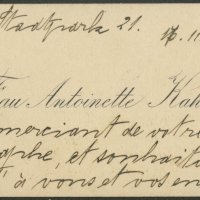 Stadtpark 21.
Frau Antoinette Kah
merciant de votre
graphe, et souhaita
à vous et vos en